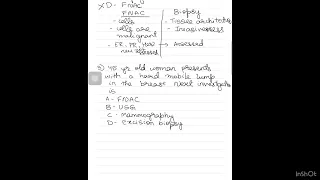 XD- FNAC
FNAC Biopsy
- cells - Tissue architature
- cells are malignant - Invasiveness
- ER, PR, Her → Assessed
5) 45 yr old woman presents
with a hard mobile lump
in the breast. Next investigation
is
A- FNAC
B- USG
C- Mammography
D- excision biopsy
InShOt